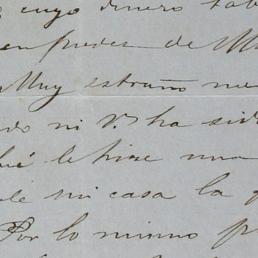 cuyo dinero
de
Muy estraño me
do ni V. ha sid
le hice una
de mi casa la
Por lo mismo p